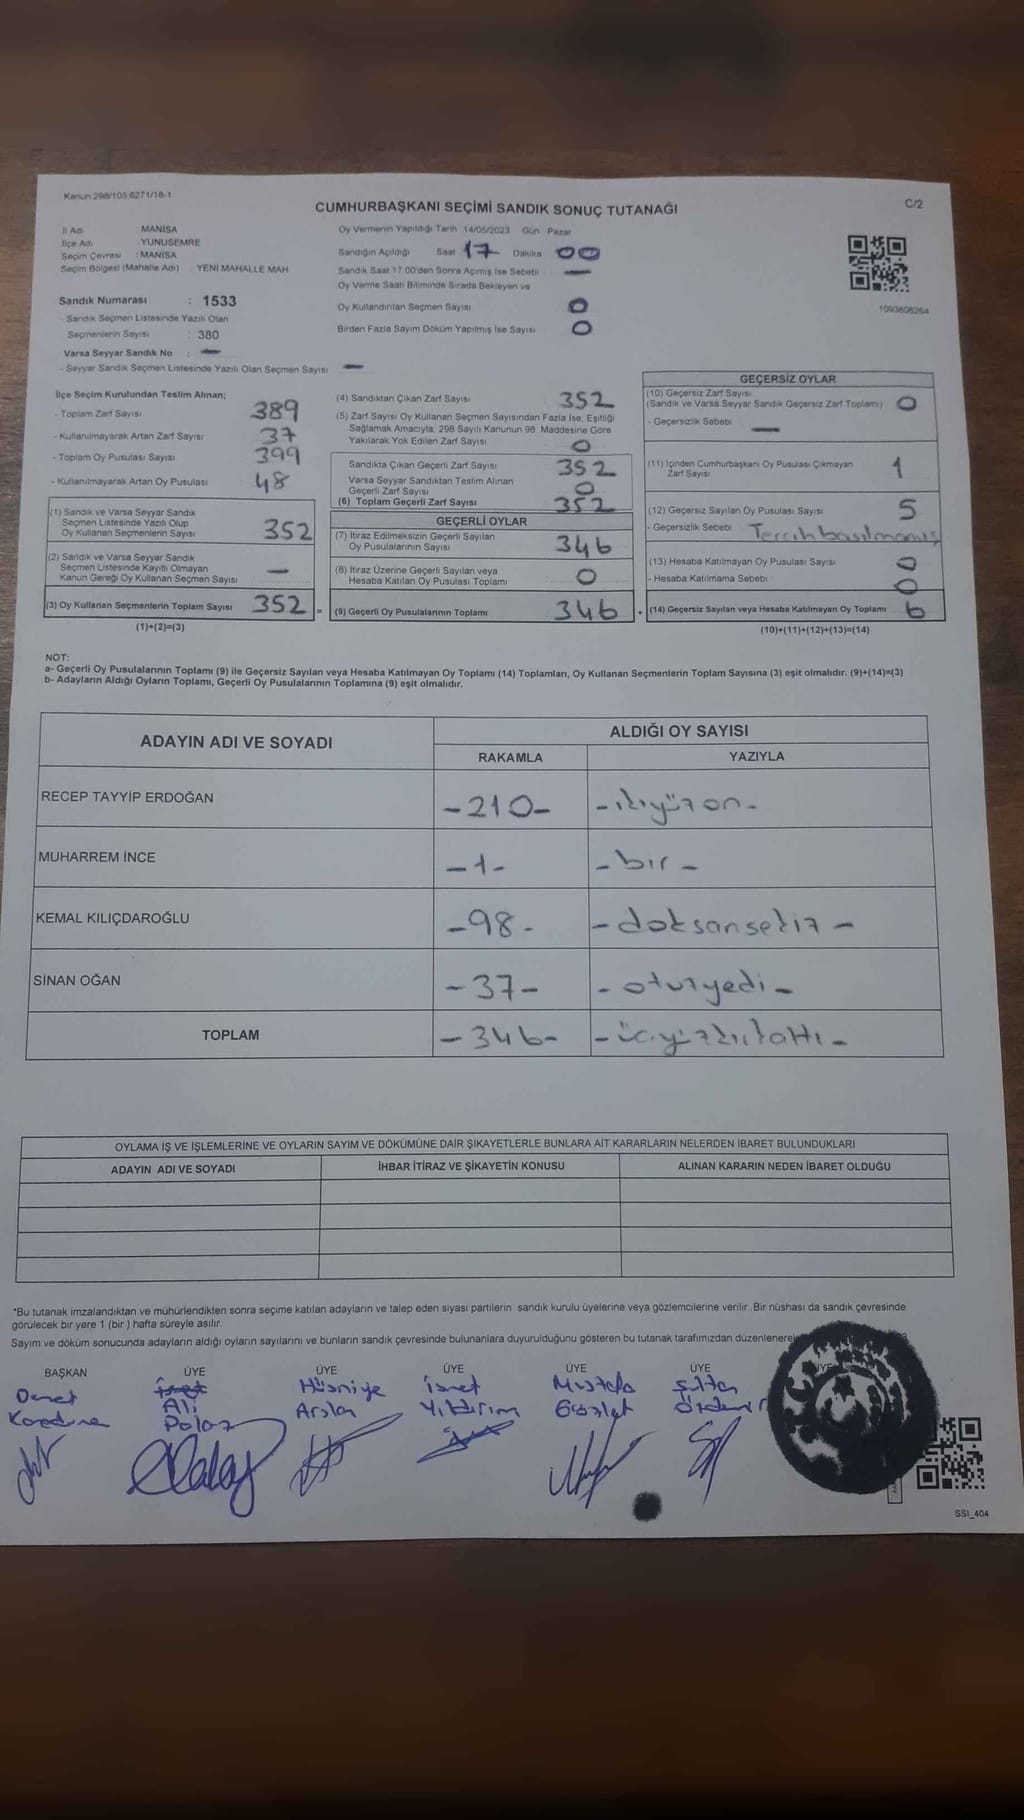 Kanun 298/105,6271/18-1
C/2
CUMHURBAŞKANI SEÇİMİ SANDIK SONUÇ TUTANAĞI
İl Adı MANİSA
İlçe Adı YUNUSEMRE
Seçim Çevresi : MANİSA
Seçim Bölgesi (Mahalle Adı) YENİ MAHALLE MAH
Sandık Numarası : 1533
- Sandık Seçmen Listesinde Yazılı Olan
Seçmenlerin Sayısı : 380
Varsa Seyyar Sandık No : —
- Seyyar Sandık Seçmen Listesinde Yazılı Olan Seçmen Sayısı —
Oy Vermenin Yapıldığı Tarih 14/05/2023 Gün Pazar
Sandığın Açıldığı Saat 17 Dakika 00
Sandık Saat 17:00'den Sonra Açımış İse Sebebi —
Oy Verme Saati Bitiminde Sırada Bekleyen ve
Oy Kullandırılan Seçmen Sayısı 0
Birden Fazla Sayım Döküm Yapılmış İse Sayısı 0
1093606264
İlçe Seçim Kurulundan Teslim Alınan;
- Toplam Zarf Sayısı 389
- Kullanılmayarak Artan Zarf Sayısı 37
- Toplam Oy Pusulası Sayısı 399
- Kullanılmayarak Artan Oy Pusulası 48
(1) Sandık ve Varsa Seyyar Sandık
Seçmen Listesinde Yazılı Olup
Oy Kullanan Seçmenlerin Sayısı 352
(2) Sandık ve Varsa Seyyar Sandık
Seçmen Listesinde Kayıtlı Olmayan
Kanun Gereği Oy Kullanan Seçmen Sayısı —
(3) Oy Kullanan Seçmenlerin Toplam Sayısı 352 =
(1)+(2)=(3)
(4) Sandıktan Çıkan Zarf Sayısı 352
(5) Zarf Sayısı Oy Kullanan Seçmen Sayısından Fazla İse, Eşitliği
Sağlamak Amacıyla, 298 Sayılı Kanunun 98. Maddesine Göre
Yakılarak Yok Edilen Zarf Sayısı 0
Sandıkta Çıkan Geçerli Zarf Sayısı 352
Varsa Seyyar Sandıktan Teslim Alınan
Geçerli Zarf Sayısı 0
(6) Toplam Geçerli Zarf Sayısı 352
GEÇERLİ OYLAR
(7) İtiraz Edilmeksizin Geçerli Sayılan
Oy Pusulalarının Sayısı 346
(8) İtiraz Üzerine Geçerli Sayılan veya
Hesaba Katılan Oy Pusulası Toplamı 0
(9) Geçerli Oy Pusulalarının Toplamı 346 +
GEÇERSİZ OYLAR
(10) Geçersiz Zarf Sayısı
(Sandık ve Varsa Seyyar Sandık Geçersiz Zarf Toplamı) 0
- Geçersizlik Sebebi —
(11) İçinden Cumhurbaşkanı Oy Pusulası Çıkmayan
Zarf Sayısı 1
(12) Geçersiz Sayılan Oy Pusulası Sayısı 5
- Geçersizlik Sebebi Tercih basılmamış
(13) Hesaba Katılmayan Oy Pusulası Sayısı 0
- Hesaba Katılmama Sebebi 0
(14) Geçersiz Sayılan veya Hesaba Katılmayan Oy Toplamı 6
(10)+(11)+(12)+(13)=(14)
NOT:
a- Geçerli Oy Pusulalarının Toplamı (9) ile Geçersiz Sayılan veya Hesaba Katılmayan Oy Toplamı (14) Toplamları, Oy Kullanan Seçmenlerin Toplam Sayısına (3) eşit olmalıdır. (9)+(14)=(3)
b- Adayların Aldığı Oyların Toplamı, Geçerli Oy Pusulalarının Toplamına (9) eşit olmalıdır.
ADAYIN ADI VE SOYADI ALDIĞI OY SAYISI
RAKAMLA YAZIYLA
RECEP TAYYİP ERDOĞAN -210- -ikiyüzon-
MUHARREM İNCE -1- -bir-
KEMAL KILIÇDAROĞLU -98- -doksansekiz-
SİNAN OĞAN -37- -otuzyedi-
TOPLAM -346- -üçyüzkırkaltı-
OYLAMA İŞ VE İŞLEMLERİNE VE OYLARIN SAYIM VE DÖKÜMÜNE DAİR ŞİKAYETLERLE BUNLARA AİT KARARLARIN NELERDEN İBARET BULUNDUKLARI
ADAYIN ADI VE SOYADI İHBAR İTİRAZ VE ŞİKAYETİN KONUSU ALINAN KARARIN NEDEN İBARET OLDUĞU
*Bu tutanak imzalandıktan ve mühürlendikten sonra seçime katılan adayların ve talep eden siyasi partilerin sandık kurulu üyelerine veya gözlemcilerine verilir. Bir nüshası da sandık çevresinde
görülecek bir yere 1 (bir) hafta süreyle asılır.
Sayım ve döküm sonucunda adayların aldığı oyların sayılarını ve bunların sandık çevresinde bulunanlara duyurulduğunu gösteren bu tutanak tarafımızdan düzenlenerek
BAŞKAN ÜYE ÜYE ÜYE ÜYE ÜYE ÜYE
Ali Hüsniye İsmet Mustafa Sultan
Polat Arslan Yıldırım Özdemir
SSI_404